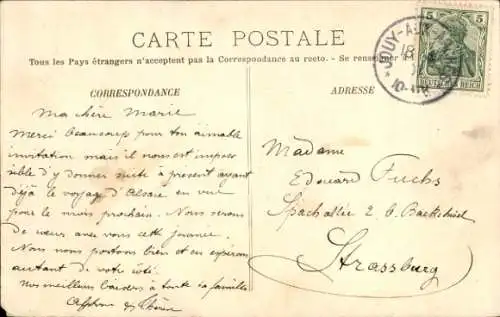 CARTE POSTALE
Tous les Pays étrangers n'acceptent pas la Correspondance au recto. - Se renseigner
CORRESPONDANCE
ADRESSE
5 5
DEUTSCHES REICH
JOUY-AUX-
18
10-11
Ma chère Marie
Merci beaucoup pour ton aimable
invitation mais il nous est impos
sible d'y donner suite à présent ayant
déjà le voyage d'Alsace en vue
pour le mois prochain. Nous serons
de cœur avec vous cette journée.
Nous nous portons bien et en espérons
autant de votre côté.
Nos meilleurs baisers à toute la famille
Alphonse &
Madame
Edouard Fuchs
Spachallée 2 b.
Strassburg